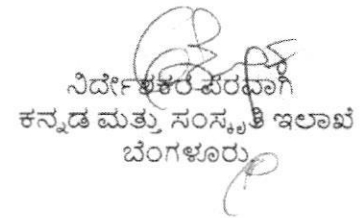 ನಿರ್ದೇಶಕರ ಪರವಾಗಿ
ಕನ್ನಡ ಮತ್ತು ಸಂಸ್ಕೃತಿ ಇಲಾಖೆ
ಬೆಂಗಳೂರು